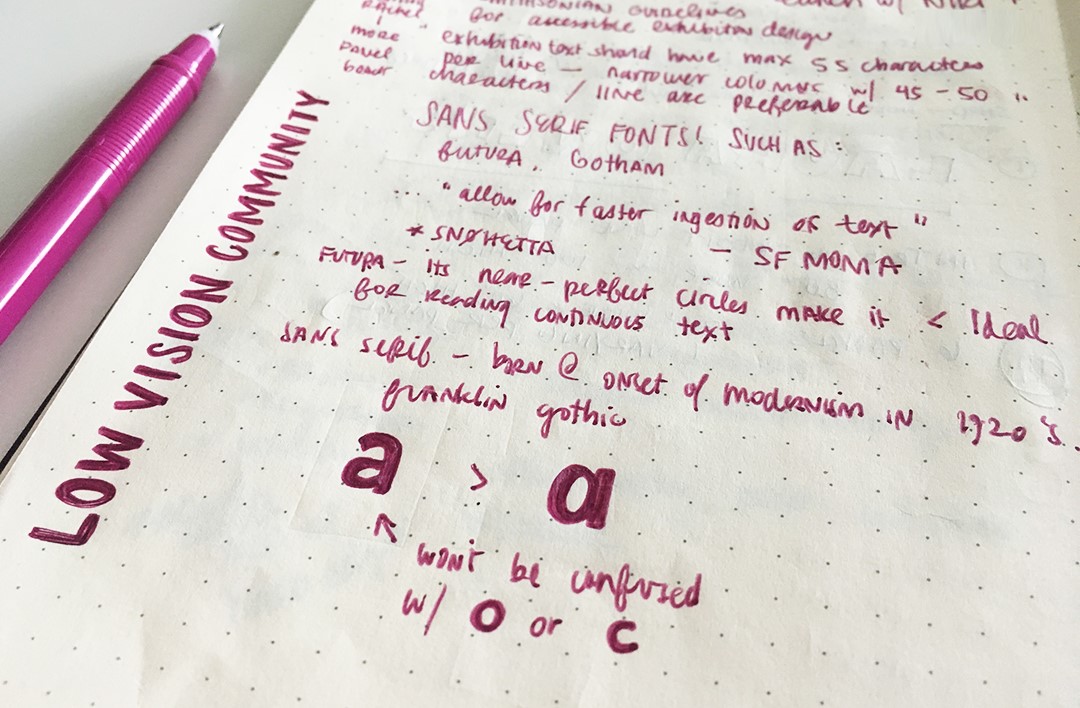 Smithsonian Guidelines
for accessible exhibition design
"exhibition text should have max 55 characters
per line — narrower columns w/ 45-50
characters / line are preferable"
Rachel
more
Pavel
LOW VISION COMMUNITY
SANS SERIF FONTS! SUCH AS:
FUTURA, GOTHAM
... "allow for faster ingestion of text"
* SNØHETTA — SF MOMA
FUTURA - Its near-perfect circles make it < Ideal
for reading continuous text
SANS serif - born @ onset of modernism in 1920's.
franklin gothic
a > ɑ
↖
won't be confused
w/ O or C